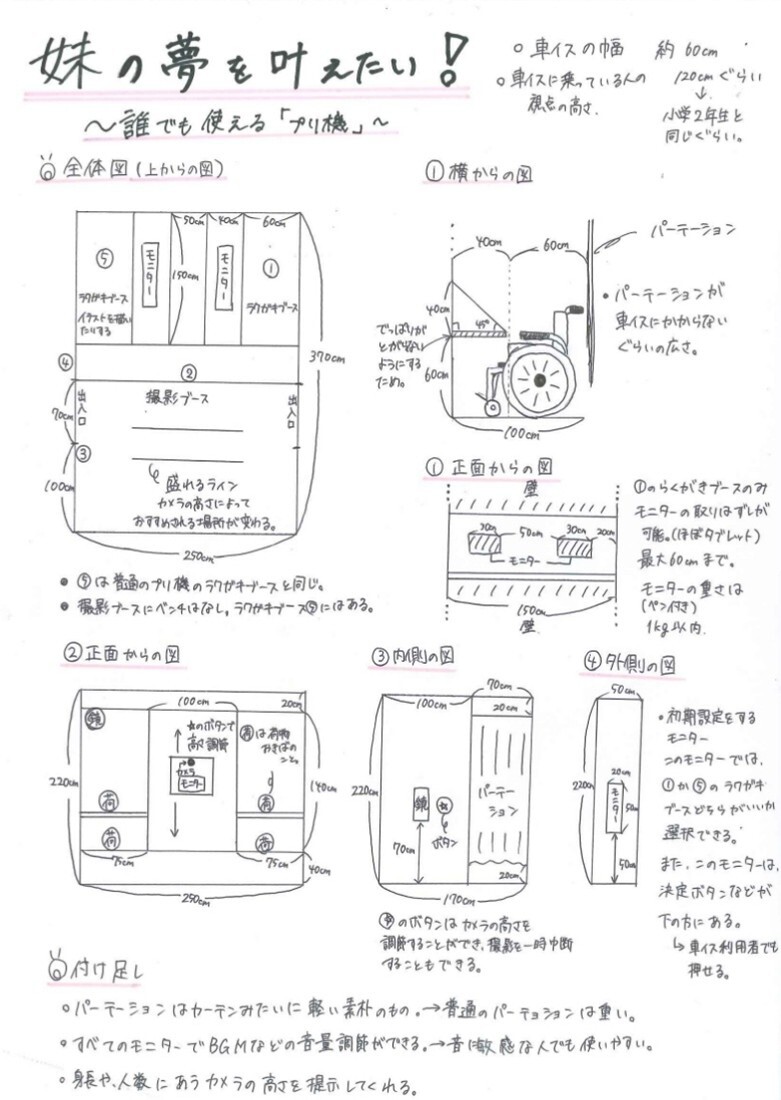 妹の夢を叶えたい!
〜誰でも使える「プリ機」〜
○ 車イスの幅 約60cm
○ 車イスに乗っている人の視点の高さ. 120cmぐらい
↓
小学2年生と
同じぐらい。
全体図(上からの図)
50cm
40cm
60cm
⑤
モニター
150cm
モニター
①
ラクガキブース
イラストを描い
たりする
ラクガキブース
370cm
④
②
出入口
撮影ブース
出入口
70cm
③
盛れるライン
カメラの高さによって
おすすめされる場所が変わる。
100cm
250cm
・⑤は普通のプリ機のラクガキブースと同じ。
・撮影ブースにベンチはなし。ラクガキブース⑤にはある。
①横からの図
40cm
60cm
パーテーション
・パーテーションが
車イスにかからない
ぐらいの広さ。
40cm
45°
でっぱりが
とがらない
ようにする
ため。
60cm
100cm
①正面からの図
壁
20cm
50cm
30cm
20cm
モニター
150cm
壁
①のらくがきブースのみ
モニターの取りはずしが
可能。(ほぼタブレット)
最大60cmまで。
モニターの重さは
(ペン付き)
1kg以内.
②正面からの図
100cm
20cm
鏡
☆のボタンで
高さ調節
荷は荷物
おきばの
こと。
カメラ
モニター
220cm
140cm
荷
荷
荷
荷
75cm
75cm
40cm
250cm
③内側の図
70cm
100cm
20cm
220cm
鏡
☆
ボタン
パーテーション
70cm
20cm
170cm
☆のボタンはカメラの高さを
調節することができ、撮影を一時中断
することもできる。
④外側の図
50cm
220cm
20cm
モニター
50cm
50cm
・初期設定をする
モニター
このモニターでは、
①か⑤のラクガキ
ブースどちらがいいか
選択できる。
また、このモニターは、
決定ボタンなどが
下の方にある。
↳車イス利用者でも
押せる。
付け足し
○パーテーションはカーテンみたいに軽い素朴のもの.→普通のパーテションは重い。
○すべてのモニターでBGMなどの音量調節ができる.→音に敏感な人でも使いやすい。
○身長や、人数にあうカメラの高さを提示してくれる。